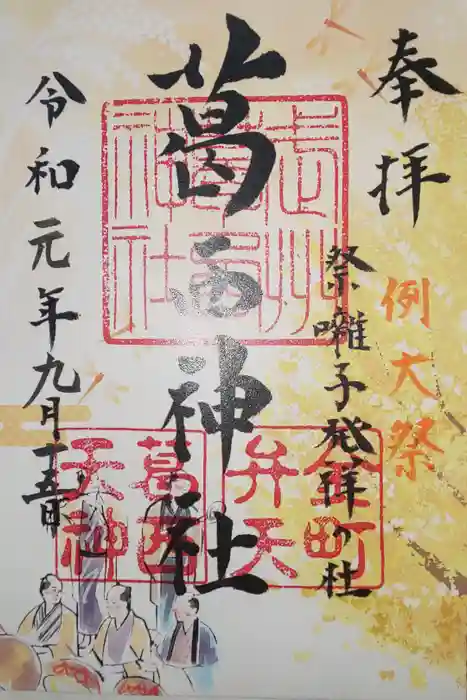 奉拝
例大祭
祭囃子発祥の社
葛西神社
令和元年九月十五日
武州
葛西
神社
金町
弁天
葛西
天神